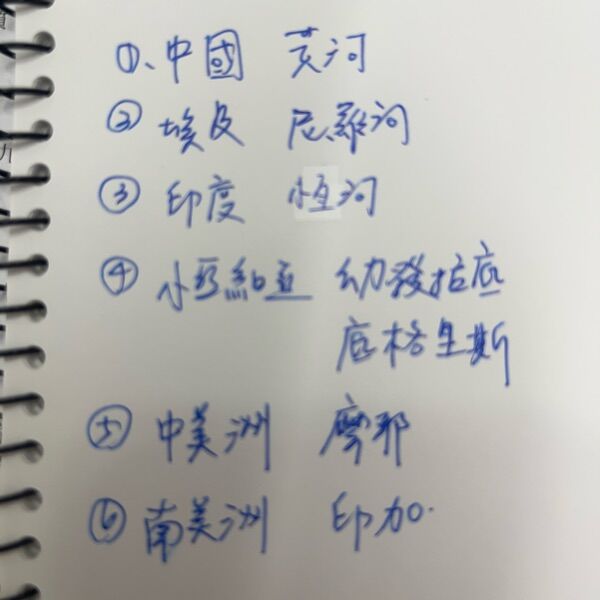 ①、中國 黃河
② 埃及 尼羅河
③ 印度 恒河
④ 小亞細亞 幼發拉底
底格里斯
⑤ 中美洲 摩耶
⑥ 南美洲 印加.